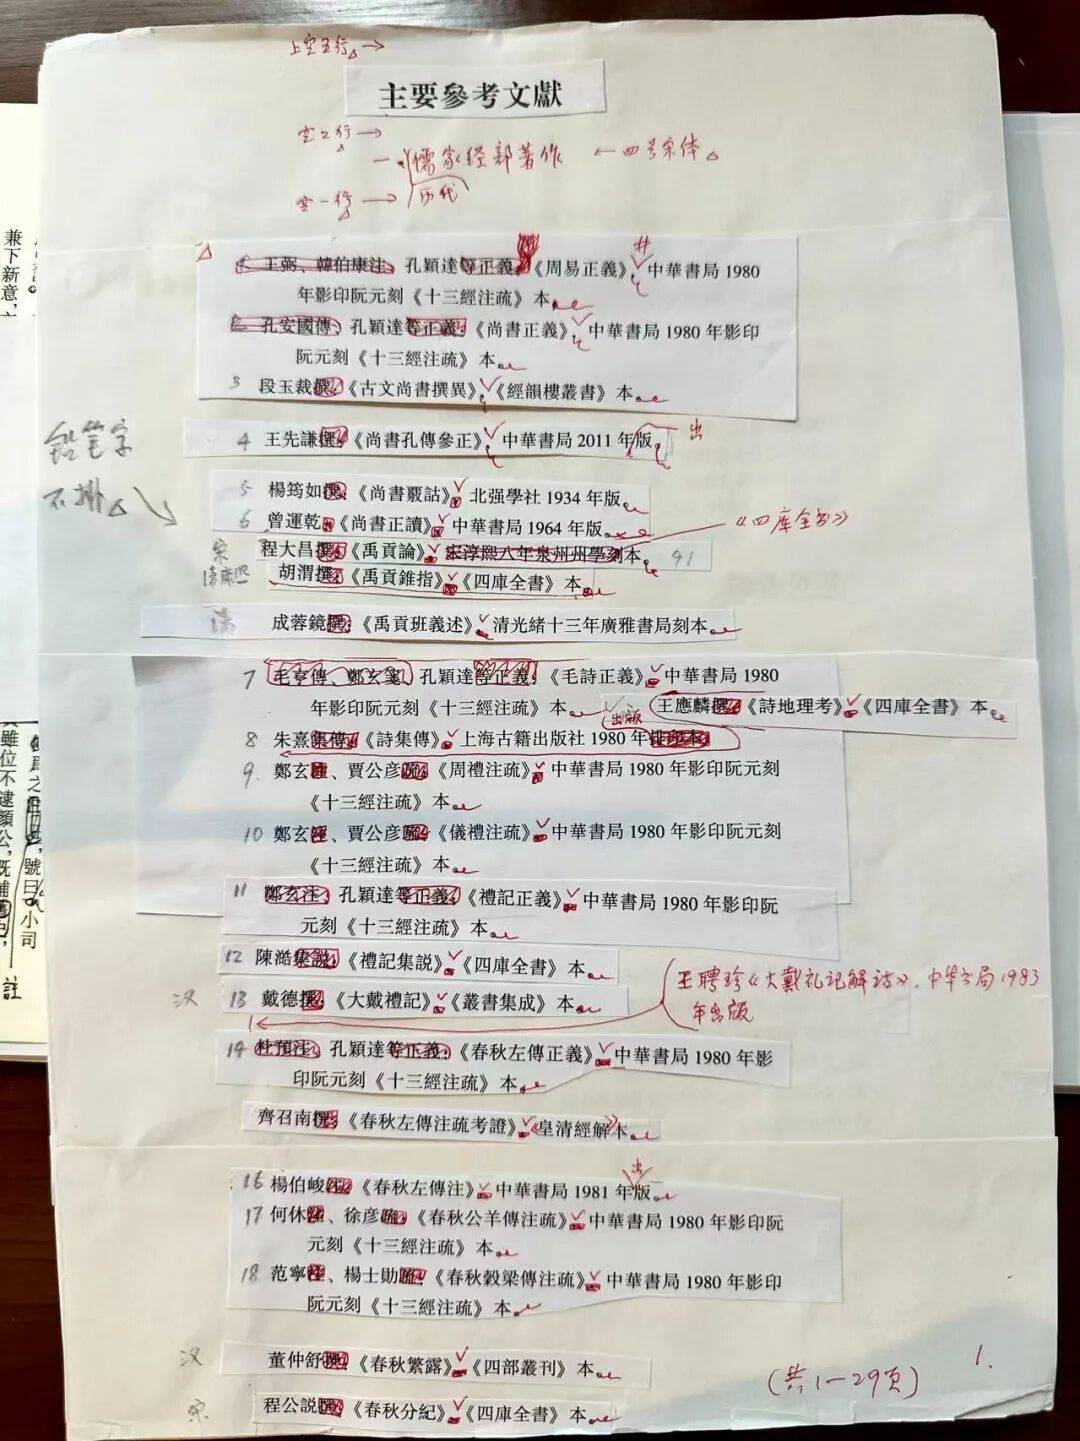 上空五行→
主要參考文獻
空2行→
一、儒家经部著作 ←四号宋体
历代
空一行→
王弼、韓伯康注、孔穎達等正義:《周易正義》,中華書局1980
年影印阮元刻《十三經注疏》本
2 孔安國傳、孔穎達等正義:《尚書正義》,中華書局1980年影印
阮元刻《十三經注疏》本
3 段玉裁撰:《古文尚書撰異》,《經韻樓叢書》本
4 王先謙撰:《尚書孔傳參正》,中華書局2011年版 出
铅笔字
不排
5 楊筠如撰:《尚書覈詁》,北强學社1934年版
6 曾運乾:《尚書正讀》,中華書局1964年版 《四库全书》
宋 程大昌撰:《禹貢論》,宋淳熙八年泉州州學刻本 91
清 胡渭撰:《禹貢錐指》《四庫全書》本
清 成蓉鏡撰:《禹貢班義述》,清光緒十三年廣雅書局刻本
7 毛亨傳、鄭玄箋、孔穎達等正義:《毛詩正義》,中華書局1980
年影印阮元刻《十三經注疏》本 王應麟撰:《詩地理考》《四庫全書》本
出版
8 朱熹集傳:《詩集傳》,上海古籍出版社1980年排印本
9. 鄭玄注、賈公彦疏:《周禮注疏》,中華書局1980年影印阮元刻
《十三經注疏》本
10 鄭玄注、賈公彦疏:《儀禮注疏》,中華書局1980年影印阮元刻
《十三經注疏》本
11 鄭玄注、孔穎達等正義:《禮記正義》,中華書局1980年影印阮
元刻《十三經注疏》本
12 陳澔集説:《禮記集説》,《四庫全書》本
王聘珍《大戴礼记解诂》,中华书局1983
年出版
汉 13 戴德撰:《大戴禮記》,《叢書集成》本
14 杜預注、孔穎達等正義:《春秋左傳正義》,中華書局1980年影
印阮元刻《十三經注疏》本
齊召南撰:《春秋左傳注疏考證》,《皇清經解》本
出
16 楊伯峻注:《春秋左傳注》,中華書局1981年版
17 何休注、徐彦疏:《春秋公羊傳注疏》,中華書局1980年影印阮
元刻《十三經注疏》本
18 范寧注、楊士勛疏:《春秋穀梁傳注疏》,中華書局1980年影印
阮元刻《十三經注疏》本
汉 董仲舒撰:《春秋繁露》,《四部叢刊》本
1.
(共1—29页)
宋 程公説撰:《春秋分紀》,《四庫全書》本
兼下新意,
雖位不逮顔公,既補
號曰小司
註